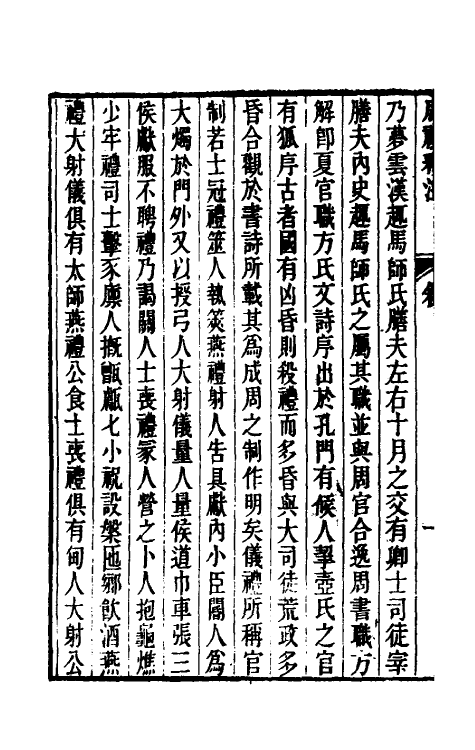 乃夢雲漢趣馬師氏膳夫左右十月之交有卿士司徒宰
膳夫內史趣馬師氏之屬其職並與周官合逸周書職方
解即夏官職方氏文詩序出於孔門有候人挈壺氏之官
有狐序古者國有凶昏則殺禮而多昏與大司徒荒政多
昏合觀於書詩所載其為成周之制作明矣儀禮所稱官
制若士冠禮筮人執筴燕禮射人告具獻內小臣閽人為
大燭於門外又以授弓人大射儀量人量侯道巾車張三
侯獻服不聘禮乃謁關人士喪禮冢人營之卜人抱龜燋
少牢禮司士擊豕廩人摡甑甗匕小祝設槃匜鄉飲酒燕
禮大射儀俱有太師燕禮公食士喪禮俱有甸人大射公